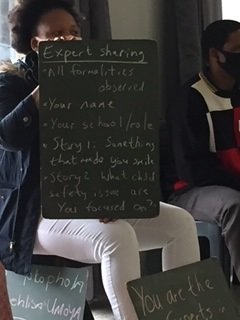 Expert sharing
• All formalities
observed
• Your name
• Your school/role
• Story 1: Something
that made you smile
• Story 2: What child
safety issue are
you focused on?
You are the